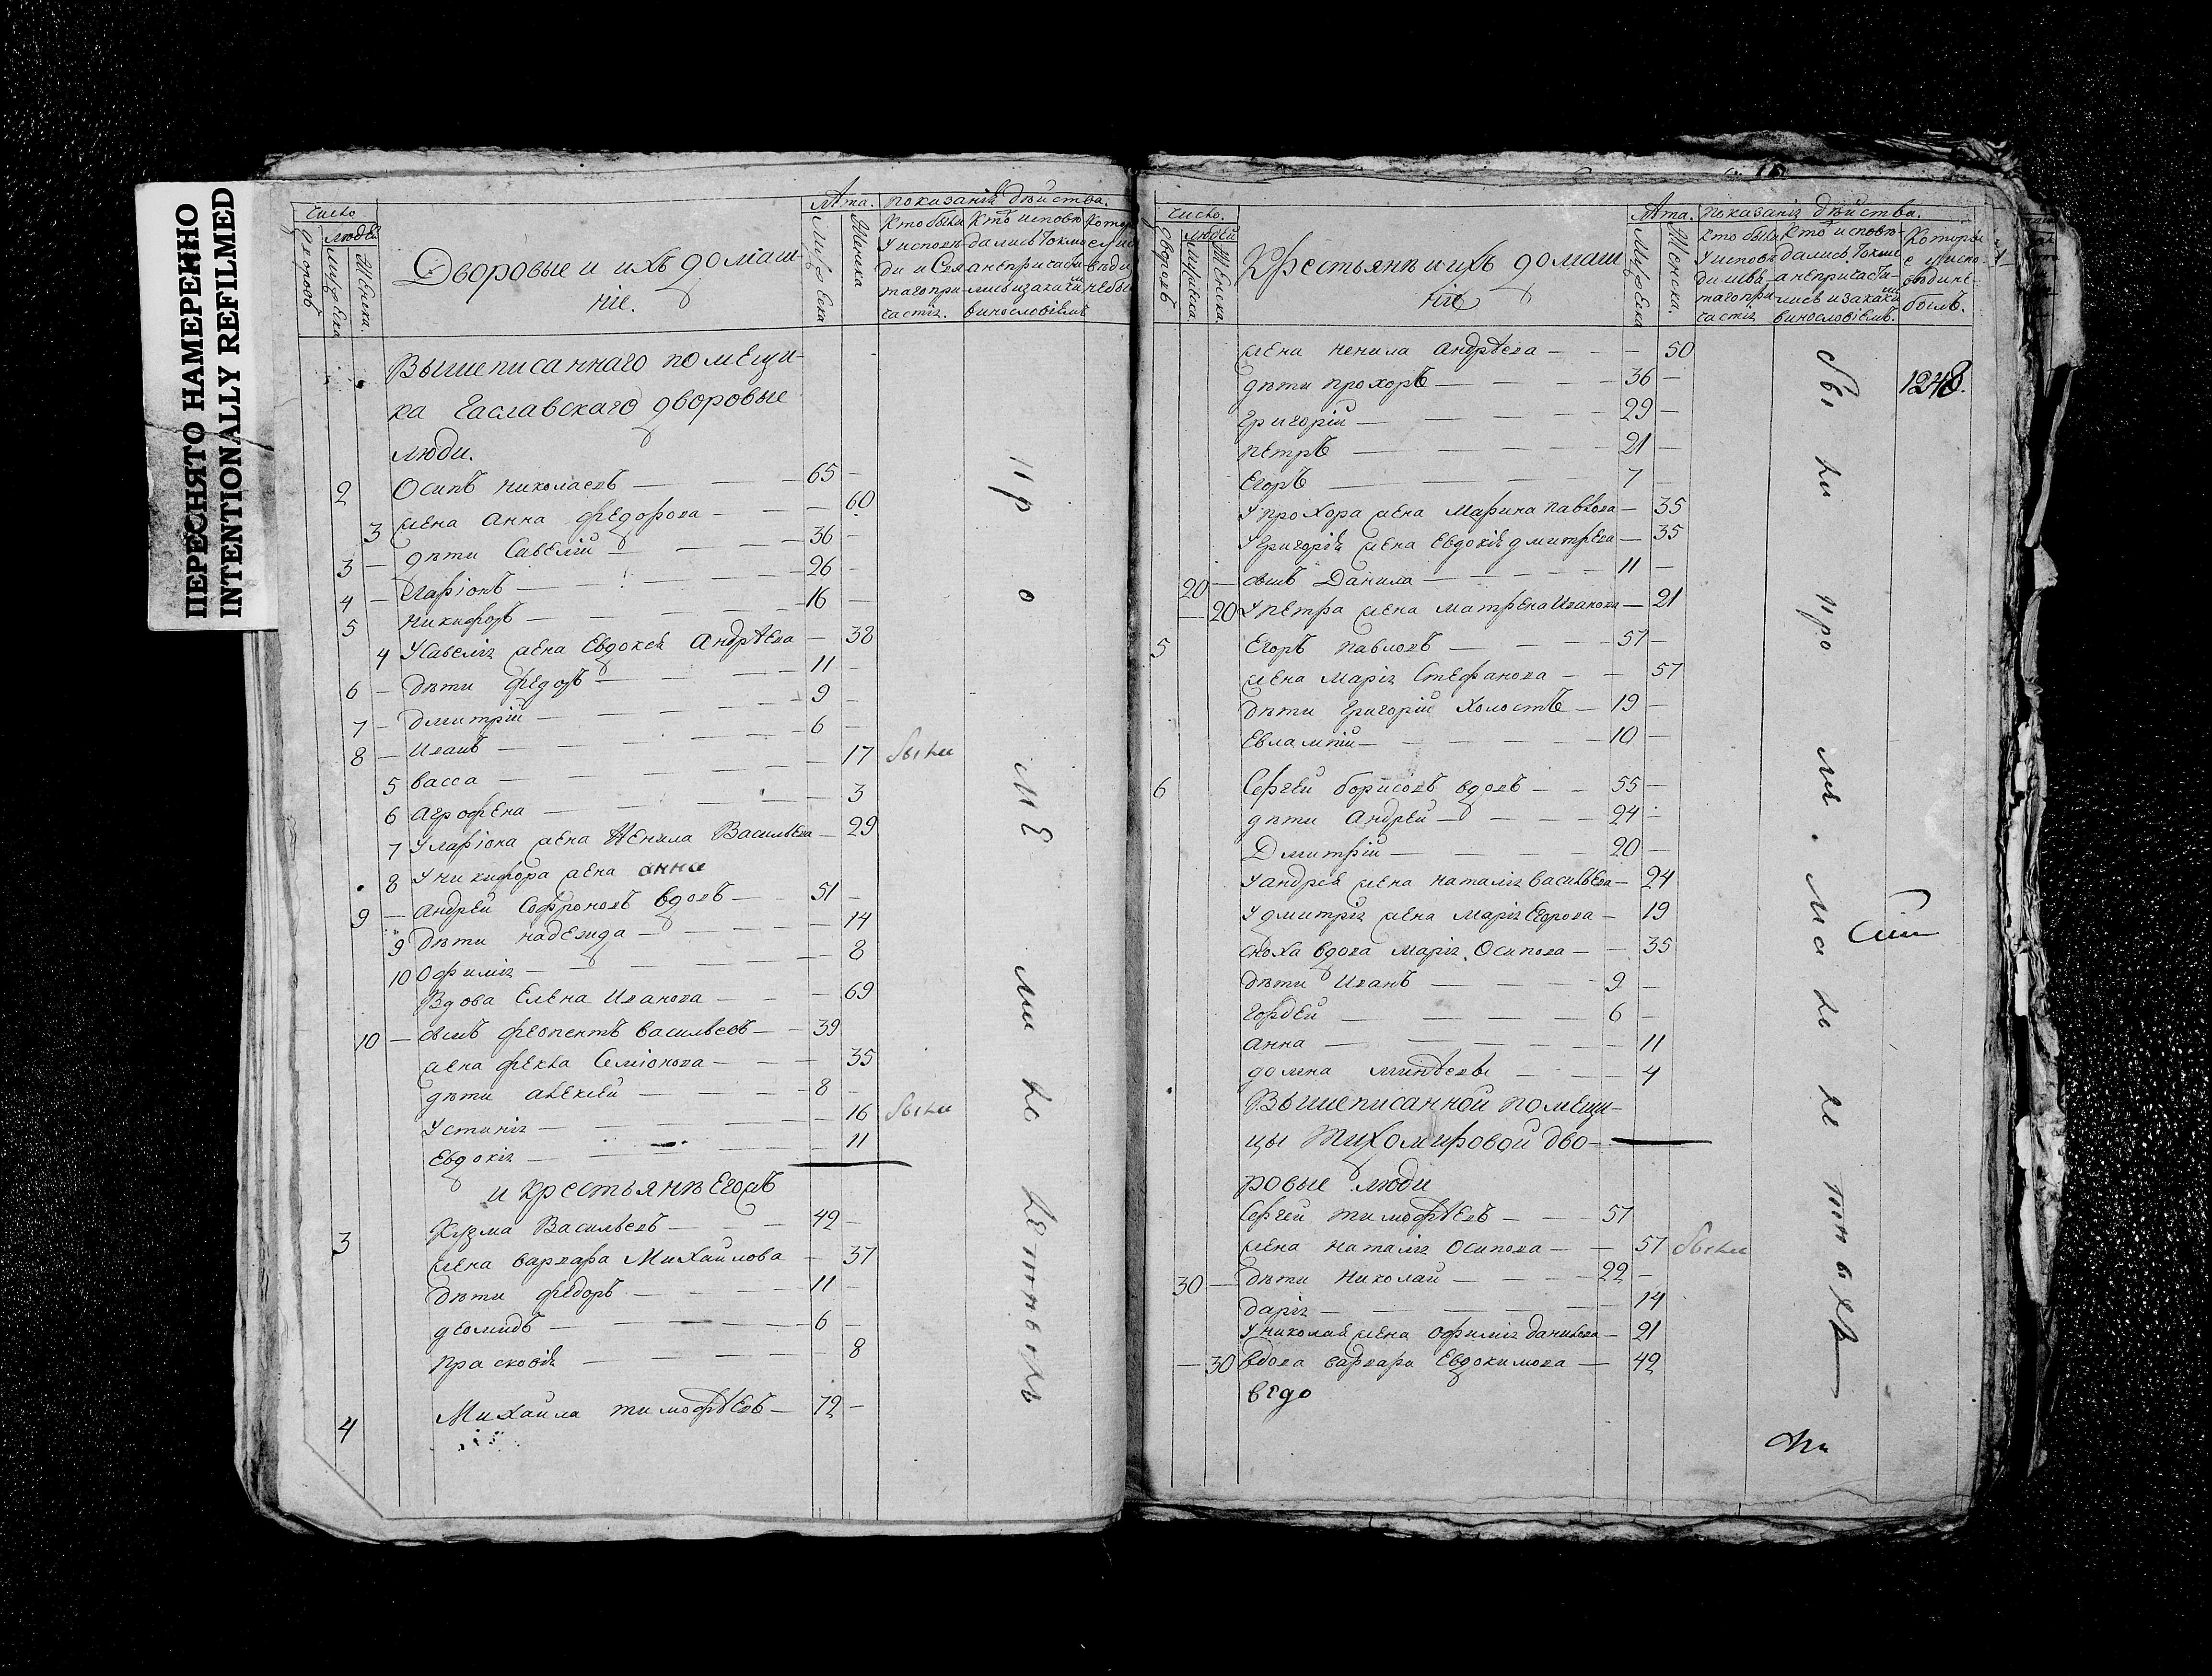 ПЕРЕСНЯТО НАМЕРЕННО
INTENTIONALLY REFILMED
число
дворовъ
людей
мужеска
женска.
Дворовые и ихъ домаш
ніе.
Лѣта.
Мужеска
Женска
показаніе дѣйства.
Кто были
у исповѣ
ди и Свя
таго при
частія.
Кто исповѣ
дались токмо
а непричасти
лись и за каким
винословіемъ
Вышеписаннаго помещи-
ка дворовые
люди.
2 Осипъ Николаевъ — 65 —
3 жена Анна Федорова — 60
3 — дѣти Савелій — 36 —
4 — Ларіонъ — 26 —
5 Никифоръ — 16 —
4 У Савелія жена Евдокея Андрѣева — 38
6 — дѣти Федоръ — 11 —
7 — Дмитрій — 9 —
8 — Иванъ — 6 —
5 васса — 17 были
6 Агрофена — 3
7 У Ларіона жена Ненила Васильева — 29
8 У Никифора жена анна
9 — Андрей Софроновъ вдовъ — 51 —
9 дѣти надежда — 14
10 Офимія — 8
Вдова Елена Иванова — 69
10 — сынъ феопентъ васильевъ — 39
жена фекла Семіонова — 35
дѣти алексей — 8 —
Устинія — 16 были
Евдокія — 11
и крестьянѣ Его
3 Кузма Васильевъ — 49 —
жена варвара Михайлова — 37
дѣти федоръ — 11 —
деомидъ — 6 —
прасковія — 8
4 Михайла тимофѣевъ — 72 —
число.
дворовъ
людей
Мужеска.
Женска.
Крестьянѣ и ихъ домаш
ніе
Лѣта.
Мужеска
Женска.
показаніе дѣйства.
Кто были
у исповѣ
ди и Свя
таго при
частія
Кто исповѣ-
дались, токмо
а непричасти-
лись и за каким
винословіемъ.
Которы
е у испо-
вѣди не-
былъ.
жена ненила Андрѣева — 50
дѣти прохоръ — 36 — 1248.
григорій — 29 —
петръ — 21 —
Егоръ — 7 —
У прохора жена Марина павлова — 35
У григорія жена Евдокія дмитрева — 35
20 — сынъ Данила — 11 —
— 20 У петра жена матрена Иванова — 21
5 Егоръ павловъ — 57 —
жена Марія Стефанова — 57
дѣти григорій холостъ — 19 —
Евлампій — 10 —
6 Сергей борисовъ вдовъ — 55 —
дѣти Андрей — 24 —
Дмитрій — 20 —
У андрея жена наталія васильева — 24
У дмитрія жена Марія — 19
сноха вдова Марія Осипова — 35
дѣти Иванъ — 9 —
гордей — 6 —
анна — 11
домна — 4
Вышеписанной помещи-
цы Тихомировой дво-
ровые люди
Сергей тимофѣевъ — 57
жена наталія Осипова — 57 были
30 — дѣти николай — 22 —
дарія — 14
У николая жена офимія данилова — 21
— 30 вдова варвара Евдокимова — 49
ведо